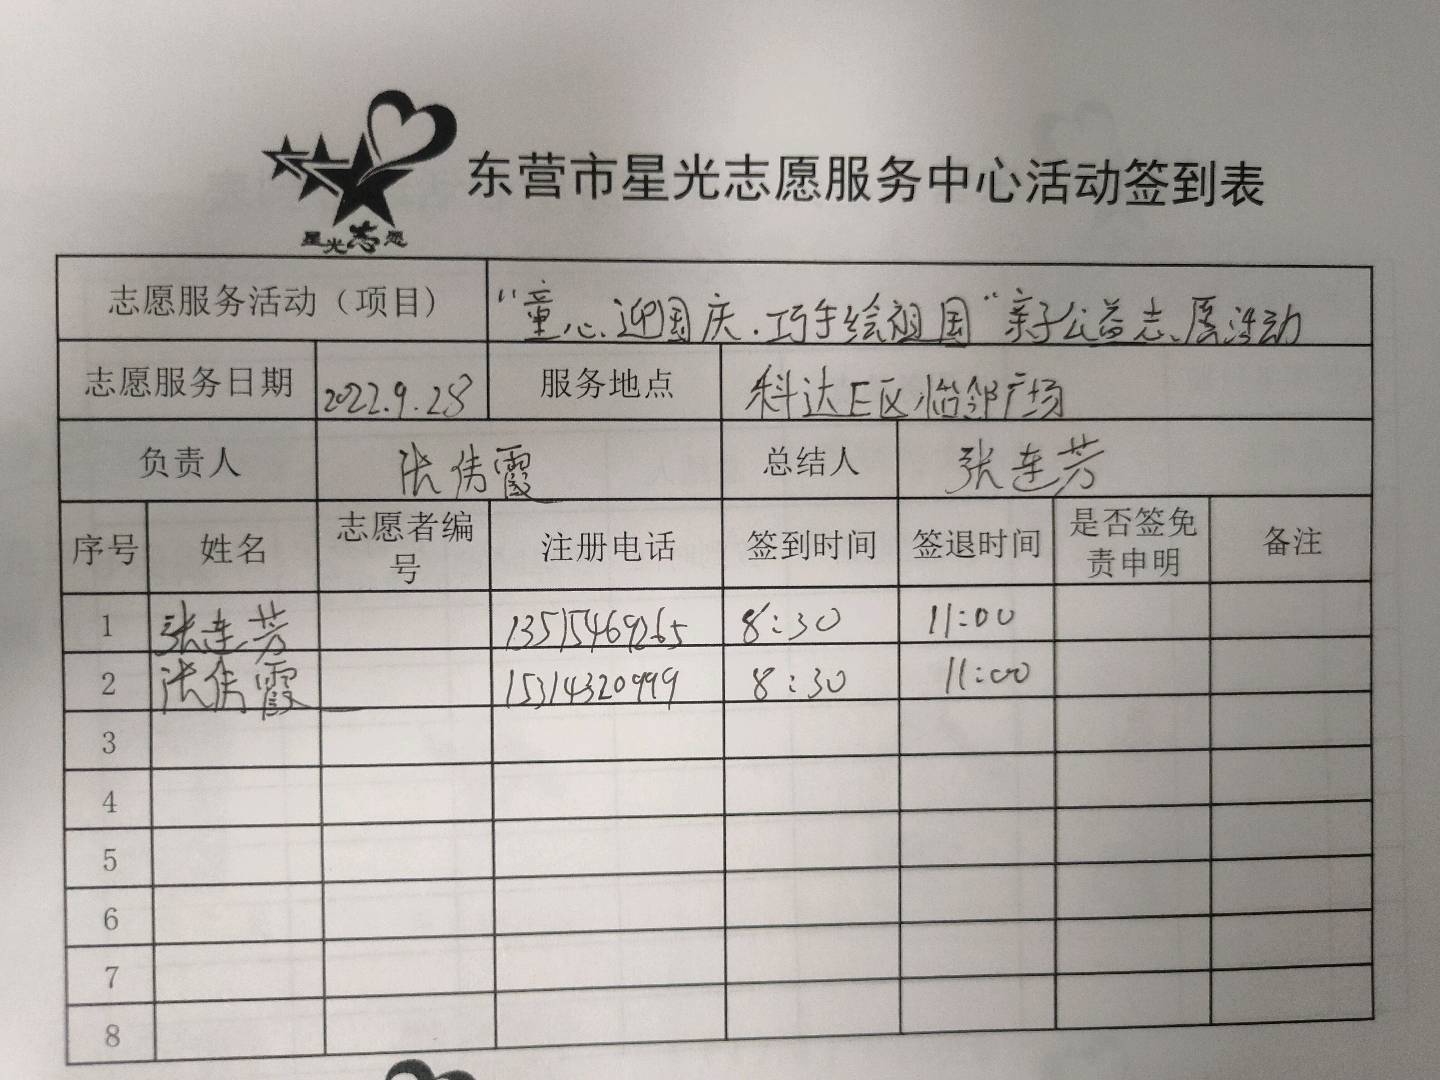 东营市星光志愿服务中心活动签到表
星光志愿
志愿服务活动（项目） “童心迎国庆.巧手绘祖国”亲子公益志愿活动
志愿服务日期 2022.9.28 服务地点 科达E区 邻广场
负责人 张倩霞 总结人 张连芳
序号 姓名 志愿者编号 注册电话 签到时间 签退时间 是否签免责申明 备注
1 张连芳 13515469265 8:30 11:00
2 张倩霞 15314320999 8:30 11:00
3
4
5
6
7
8